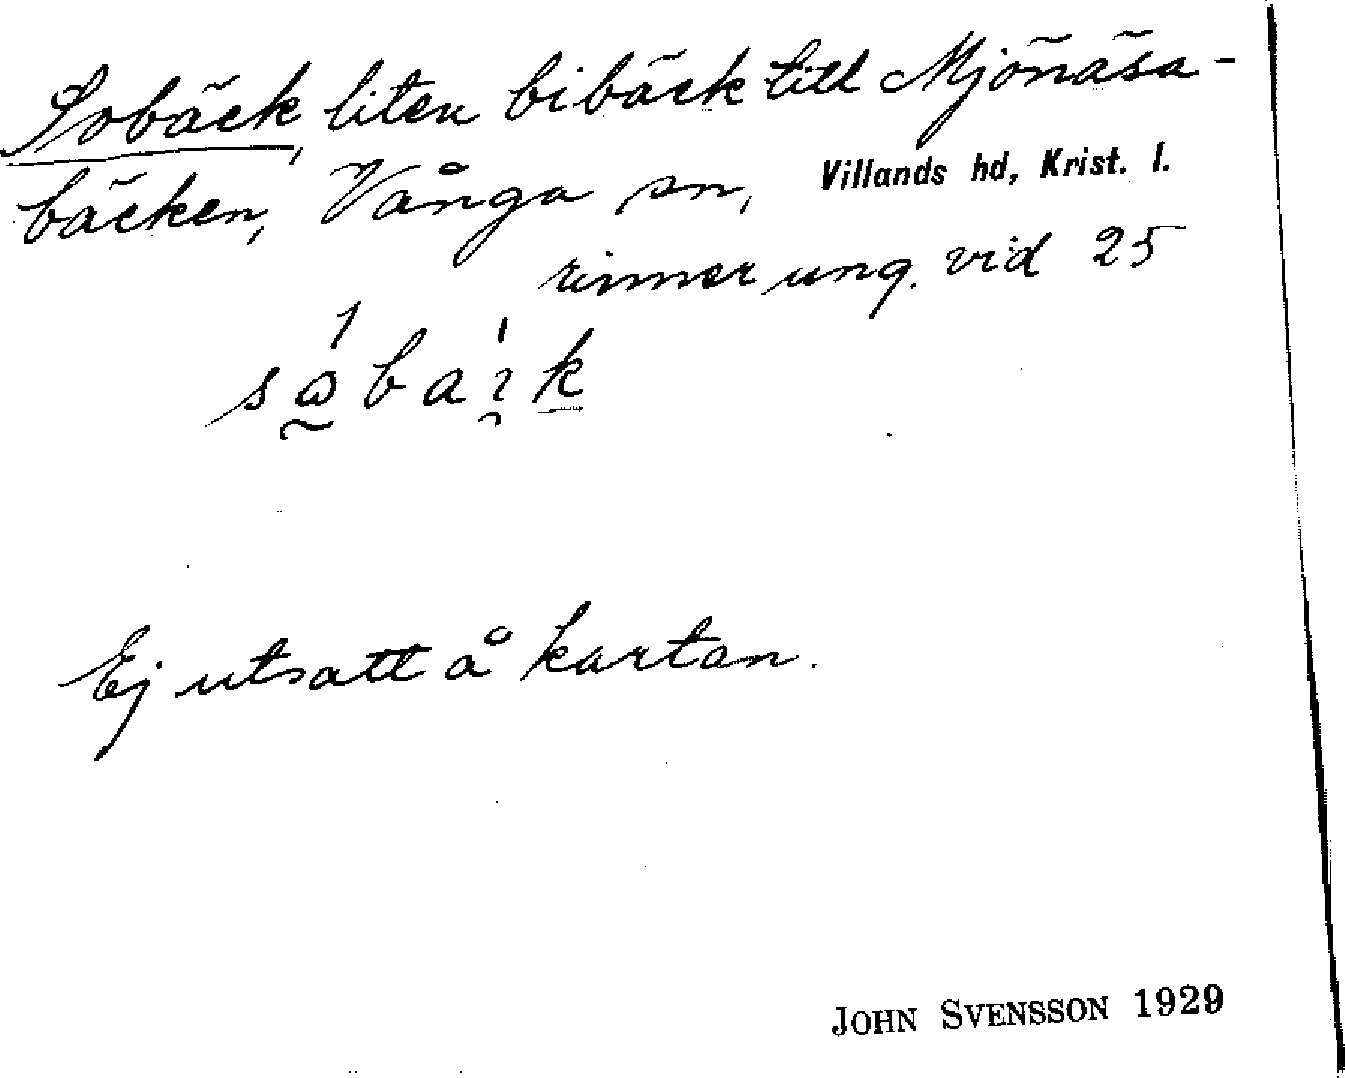 Sobäck, liten bibäck till Mjönäsa-
bäcken, Vånga sn, Villands hd, Krist. l.
rinner ung. vid 25
Ej utsatt å kartan.
JOHN SVENSSON 1929